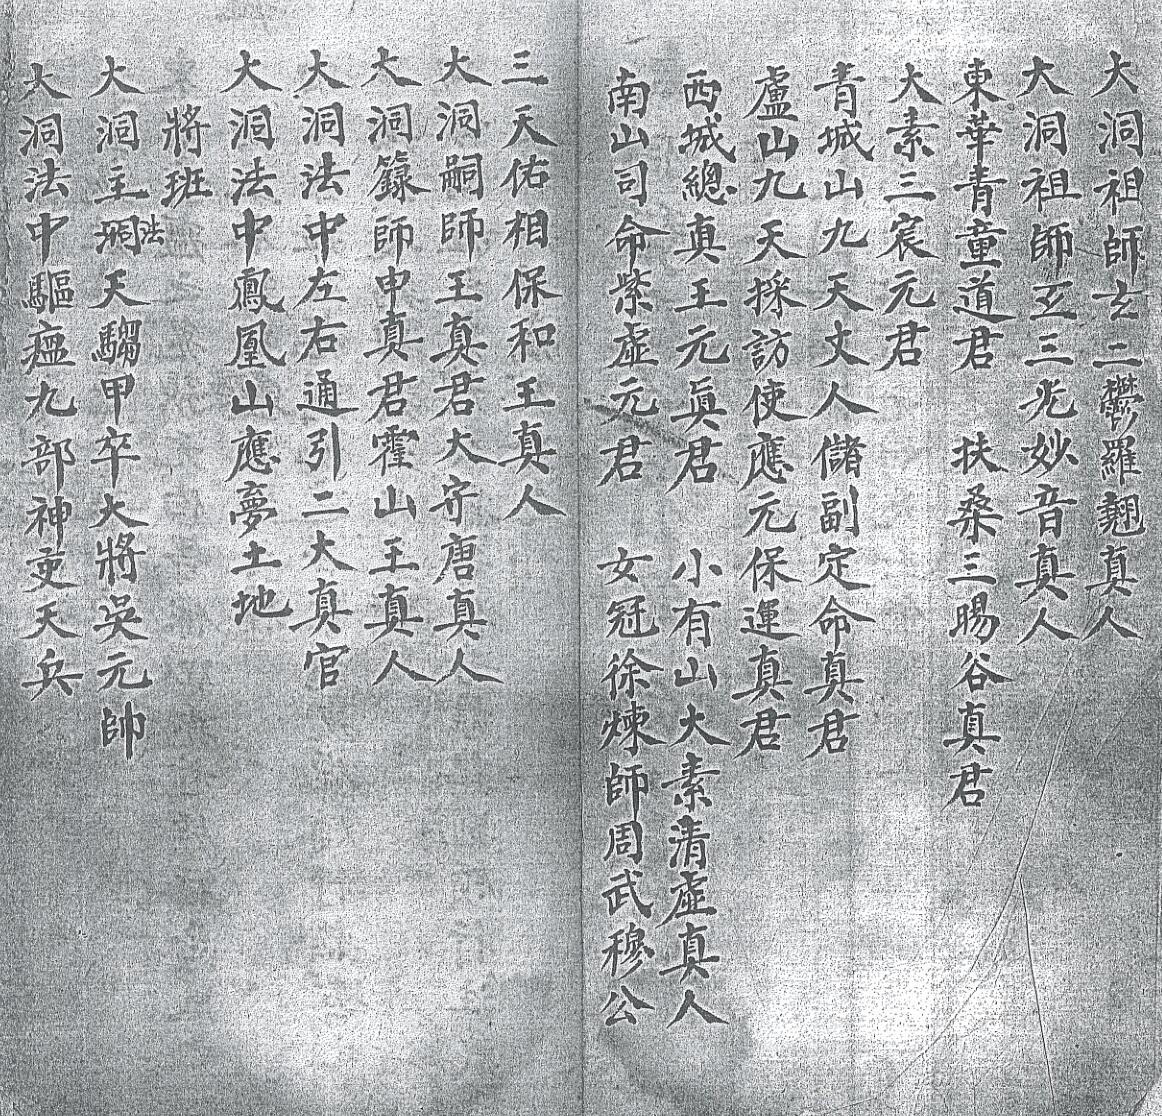 大洞祖師玄二鬱羅翹真人
大洞祖師五三老妙音真人
東華青童道君 扶桑三賜谷真君
大素三宸元君
青城山九天丈人儲副定命真君
廬山九天採訪使應元保運真君
西城總真王元真君 小有山大素清虛真人
南山司命紫虛元君 女冠徐煉師周武穆公
三天佑相保和王真人
大洞嗣師王真君大守唐真人
大洞籙師申真君霍山王真人
大洞法中左右通引二大真官
大洞法中鳳凰山應夢土地
將班
大洞主法天騶甲卒大將吳元帥
大洞法中驅瘟九部神吏天兵